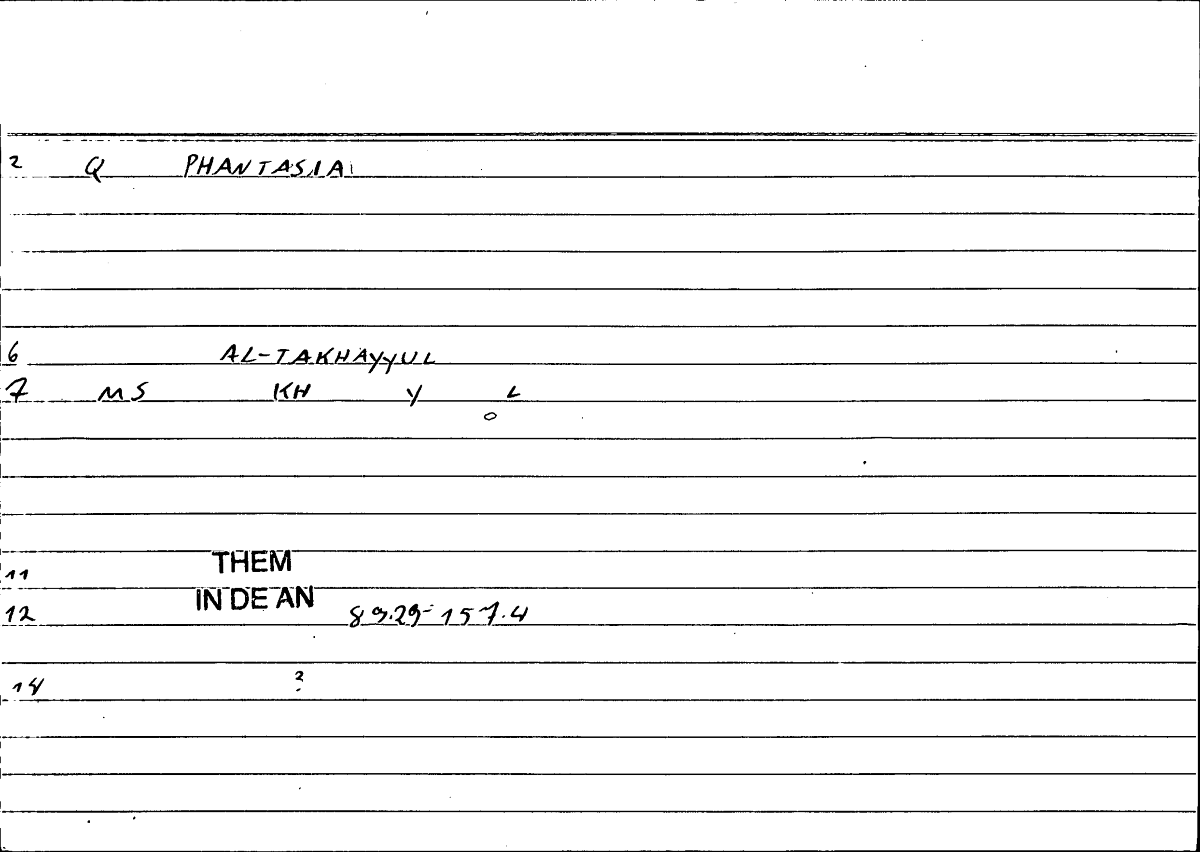 2 Q PHANTASIA
6 AL-TAKHAYYUL
7 MS KH Y L
o
11 THEM
IN DE AN
12 89.29-157.4
14 ?